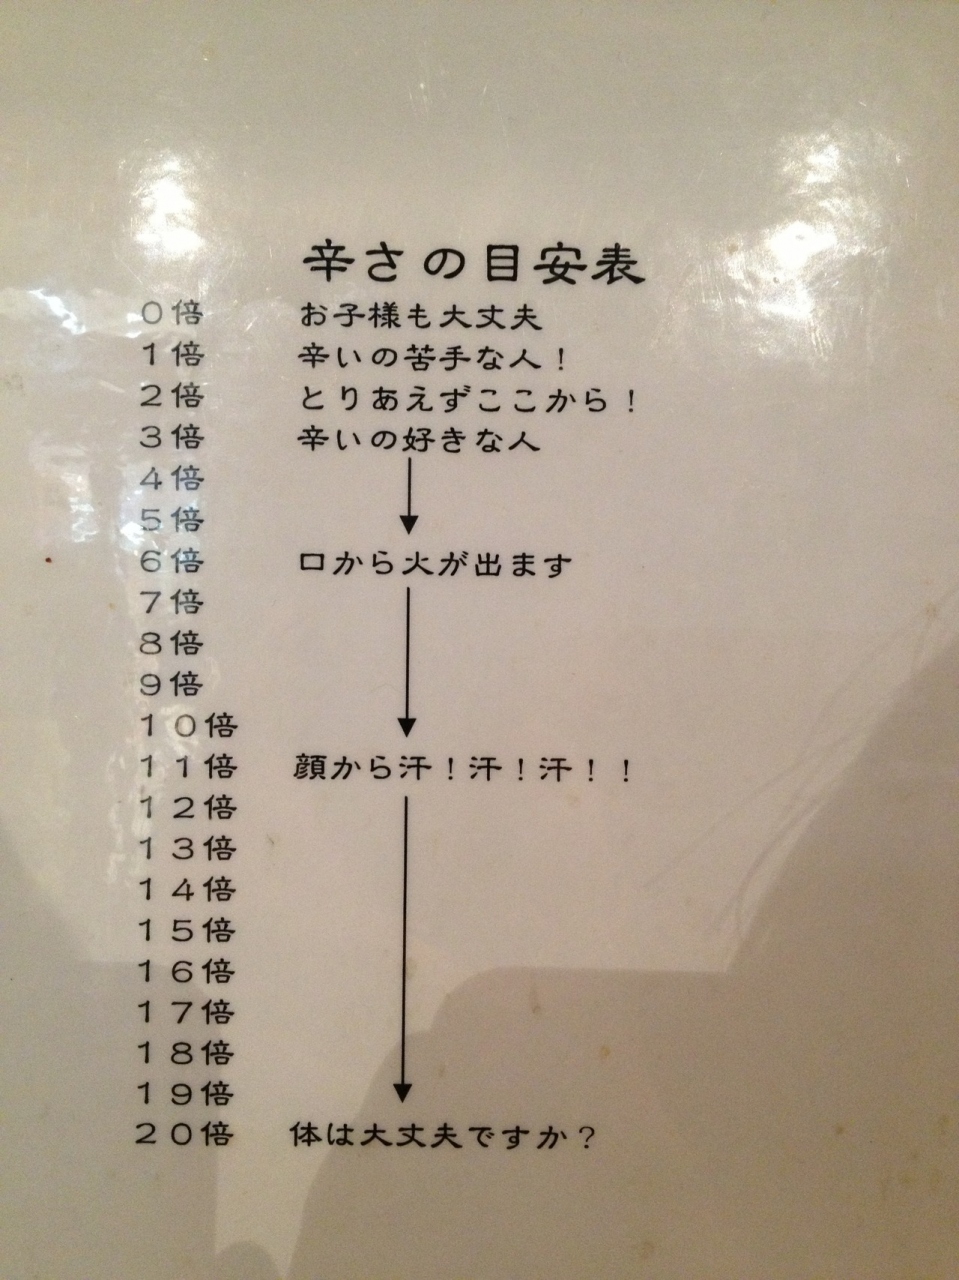 辛さの目安表
0倍 お子様も大丈夫
1倍 辛いの苦手な人！
2倍 とりあえずここから！
3倍 辛いの好きな人
4倍
5倍
6倍 口から火が出ます
7倍
8倍
9倍
10倍
11倍 顔から汗！汗！汗！！
12倍
13倍
14倍
15倍
16倍
17倍
18倍
19倍
20倍 体は大丈夫ですか？